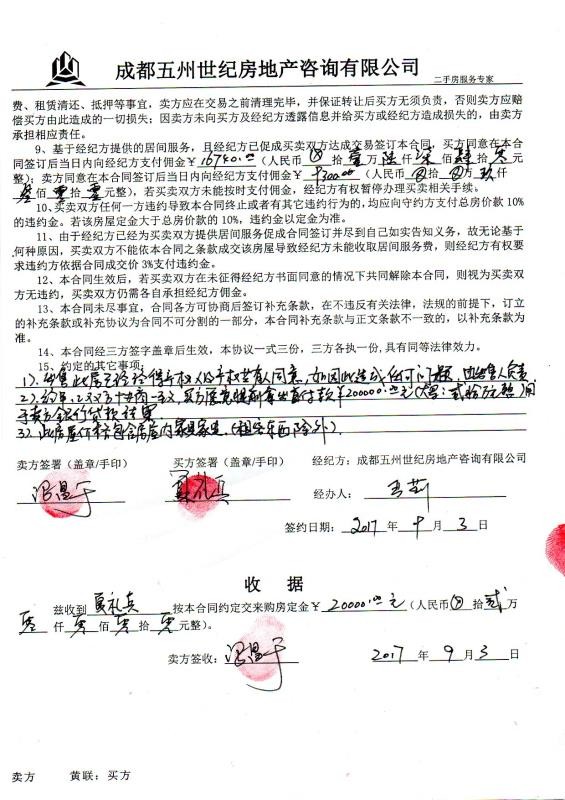 成都五州世纪房地产咨询有限公司
二手房服务专家
费、租赁清还、抵押等事宜，卖方应在交易之前清理完毕，并保证转让后买方无须负责，否则卖方应赔
偿买方由此造成的一切损失；因卖方未向买方及经纪方透露信息并给买方或经纪方造成损失的，由卖方
承担相应责任。
9、基于经纪方提供的居间服务，且经纪方已促成买卖双方达成交易签订本合同，买方同意在本合
同签订后当日内向经纪方支付佣金￥16740.00（人民币 ⊗ 拾 壹 万 陆 仟 佰 肆 拾 元
整）；卖方同意在合同签订后当日内向经纪方支付佣金￥9300.00（人民币 ⊗ 拾 ⊗ 万 玖 仟
叁 佰 零 拾 零 元整），若买卖双方未能按时支付佣金，经纪方有权暂停办理买卖相关手续。
10、买卖双方任何一方违约导致本合同终止或者有其它违约行为的，均应向守约方支付总房价款 10%
的违约金。若该房屋定金大于总房价款的 10%，违约金以定金为准。
11、由于经纪方已经为买卖双方提供居间服务促成合同签订并尽到自己如实告知义务，故无论基于
何种原因，买卖双方不能依本合同之条款成交该房屋导致经纪方未能收取居间服务费，则经纪方有权要
求违约方依据合同成交价 3%支付违约金。
12、本合同生效后，若买卖双方在未征得经纪方书面同意的情况下共同解除本合同，则视为买卖双
方无违约，买卖双方仍需各自承担经纪方佣金。
13、本合同未尽事宜，合同各方可协商后签订补充条款，在不违反有关法律，法规的前提下，订立
的补充条款或补充协议为合同不可分割的一部分，本合同补充条款与正文条款不一致的，以补充条款为
准。
14、本合同经三方签字盖章后生效，本协议一式三份，三方各执一份，具有同等法律效力。
15、约定的其它事项：
1）、出售此房已经征得产权人及产权共有人同意，如因此造成任何问题，由出售人负责
2）、买卖双方 一致，买方 首付款￥200000.00元（大写：贰拾万元整）用
于卖方银行贷款结算
3）、此房屋价格包含房屋内家具家电，（租客东西除外）．
卖方签署（盖章/手印） 买方签署（盖章/手印） 经纪方：成都五州世纪房地产咨询有限公司
经办人：
签约日期：2017 年 9 月 3 日
收 据
兹收到 夏礼贞 按本合同约定交来购房定金￥20000.00元（人民币 ⊗ 拾 贰 万
零 仟 零 佰 零 拾 零 元整）。
卖方签收： 2017 年 9 月 3 日
卖方 黄联：买方